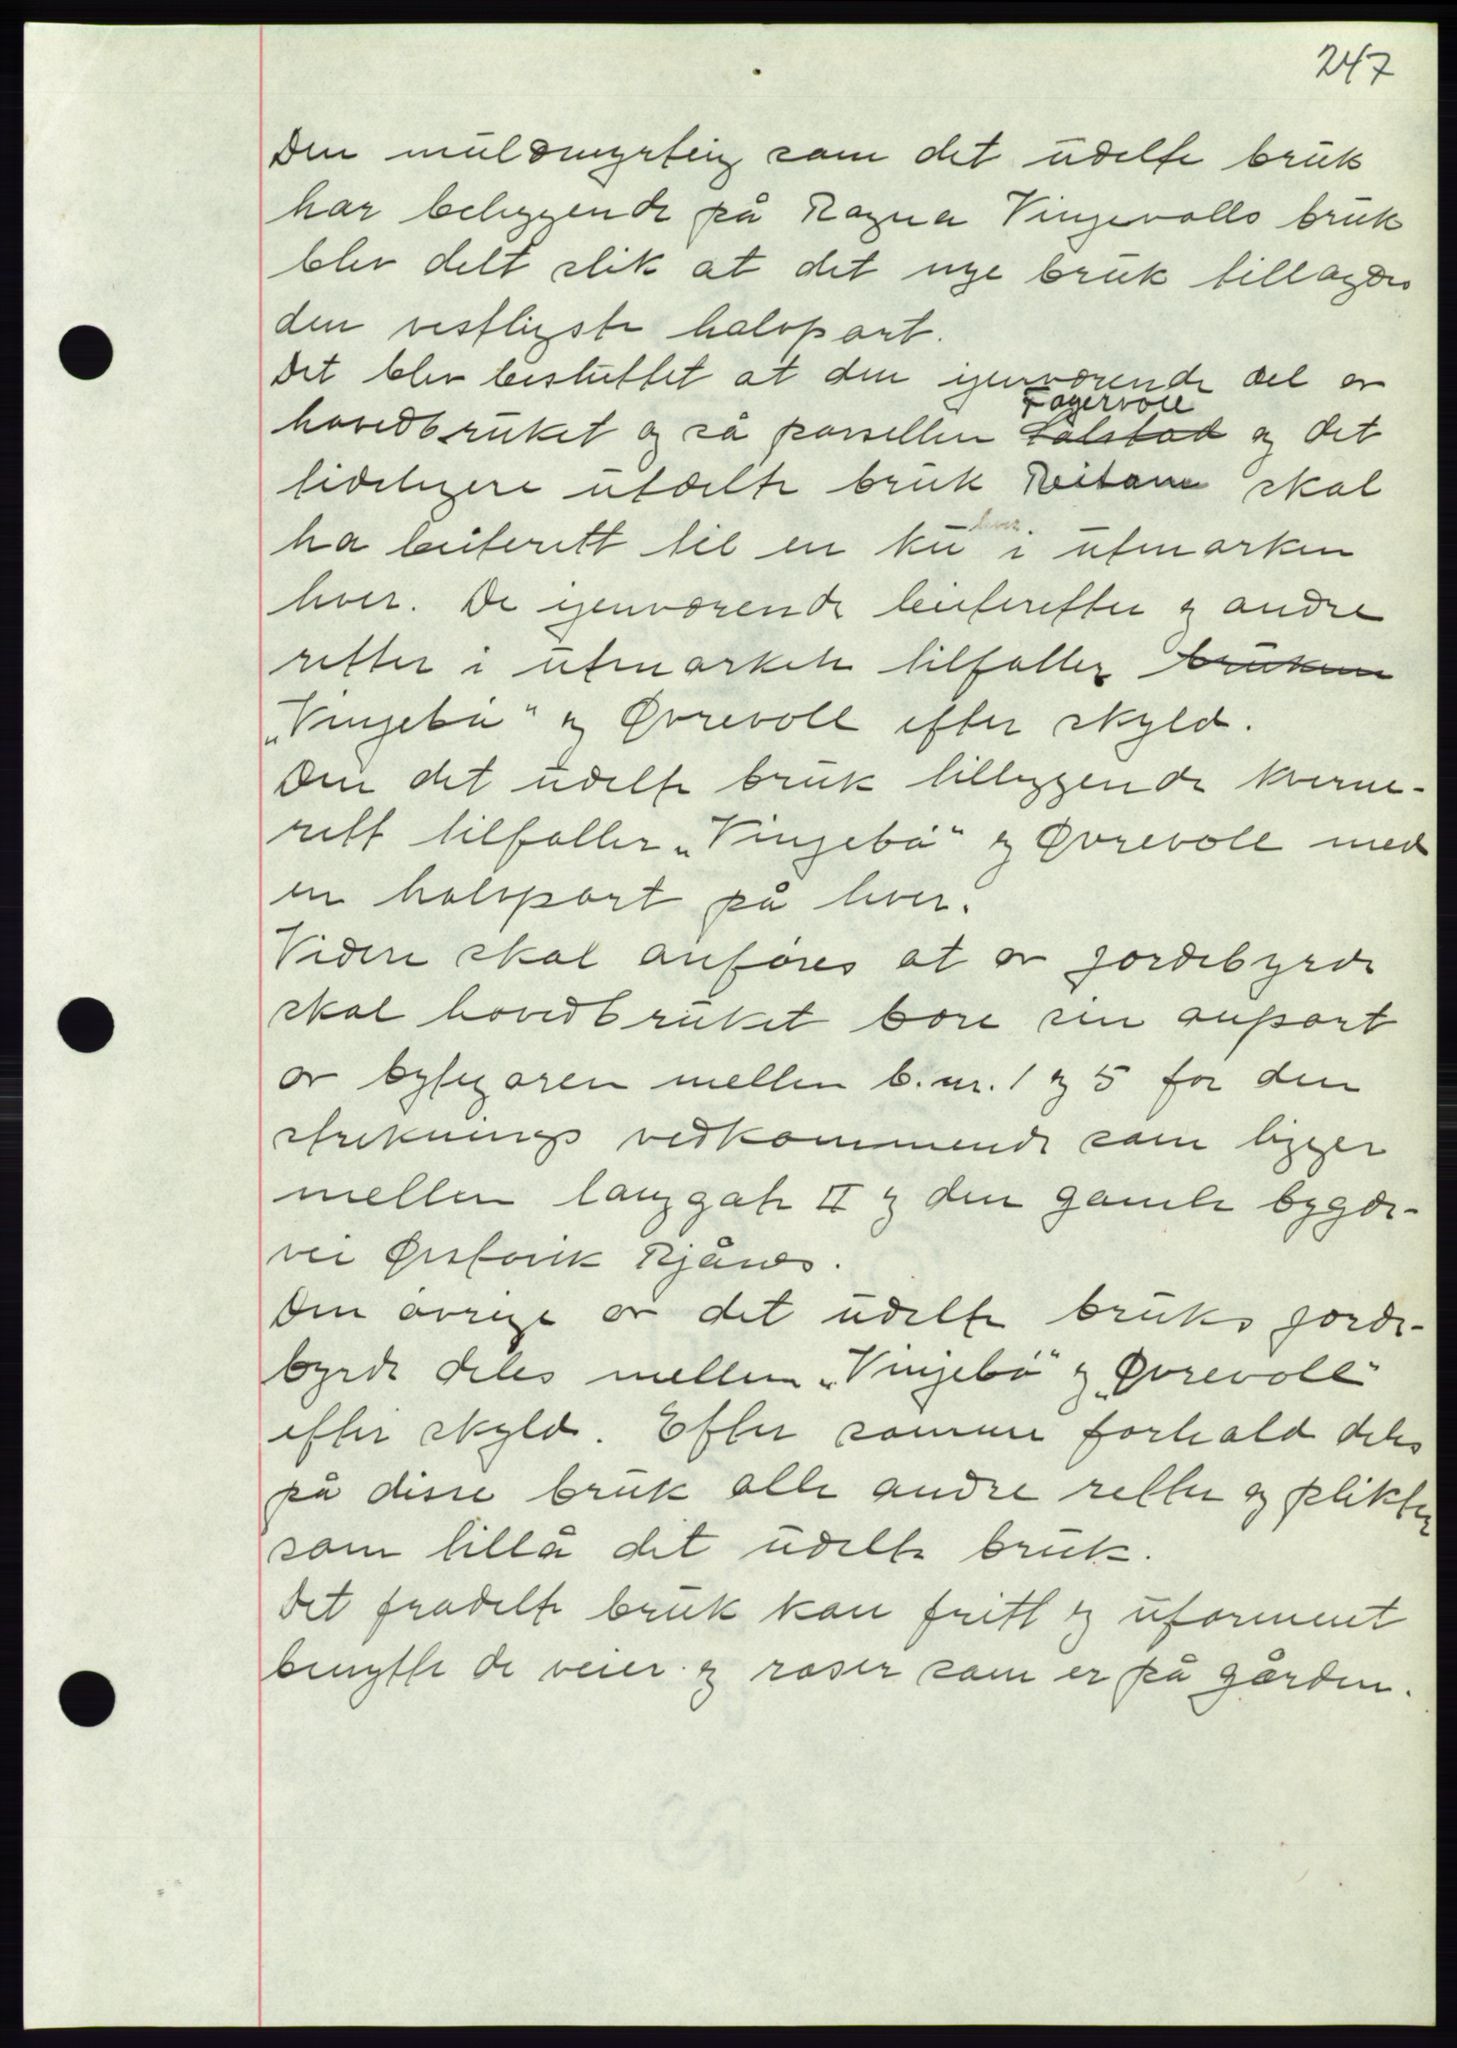 247
Den muldmyrteig som det udelte bruk
har beliggende på Ragna Vingevolls bruk
blev delt slik at det nye bruk tillagdes
den vestligste halvpart.
Det blev besluttet at den igenværende del av
Fagervoll
hovedbruket og så parsellen Solstad og det
tideligere utdelte bruk Reitane skal
hver
ha beiterett til en ku i utmarken
hver. De igenværende beiteretter og andre
retter i utmarken tilfaller brukene
„Vingebø" og Øvrevoll efter skyld.
Den det udelte bruk tilliggende kverne-
rett tilfaller „Vingebø" og Øvrevoll med
en halvpart på hver.
Videre skal anføres at av jordebyrde
skal hovedbruket bære sin anpart
av bytegaren mellem b.nr. 1 og 5 for den
streknings vedkommende som ligger
mellem langgate II og den gamle bygde-
vei Ørstavik Rjånes.
Den øvrige av det udelte bruks jorde-
byrde deles mellem „Vingebø" og „Øvrevoll"
efter skyld. Efter samme forhold deles
på disse bruk alle andre retter og plikter
som tillå det udelte bruk.
Det fradelte bruk kan fritt og uforment
benytte de veier og raser som er på gården.